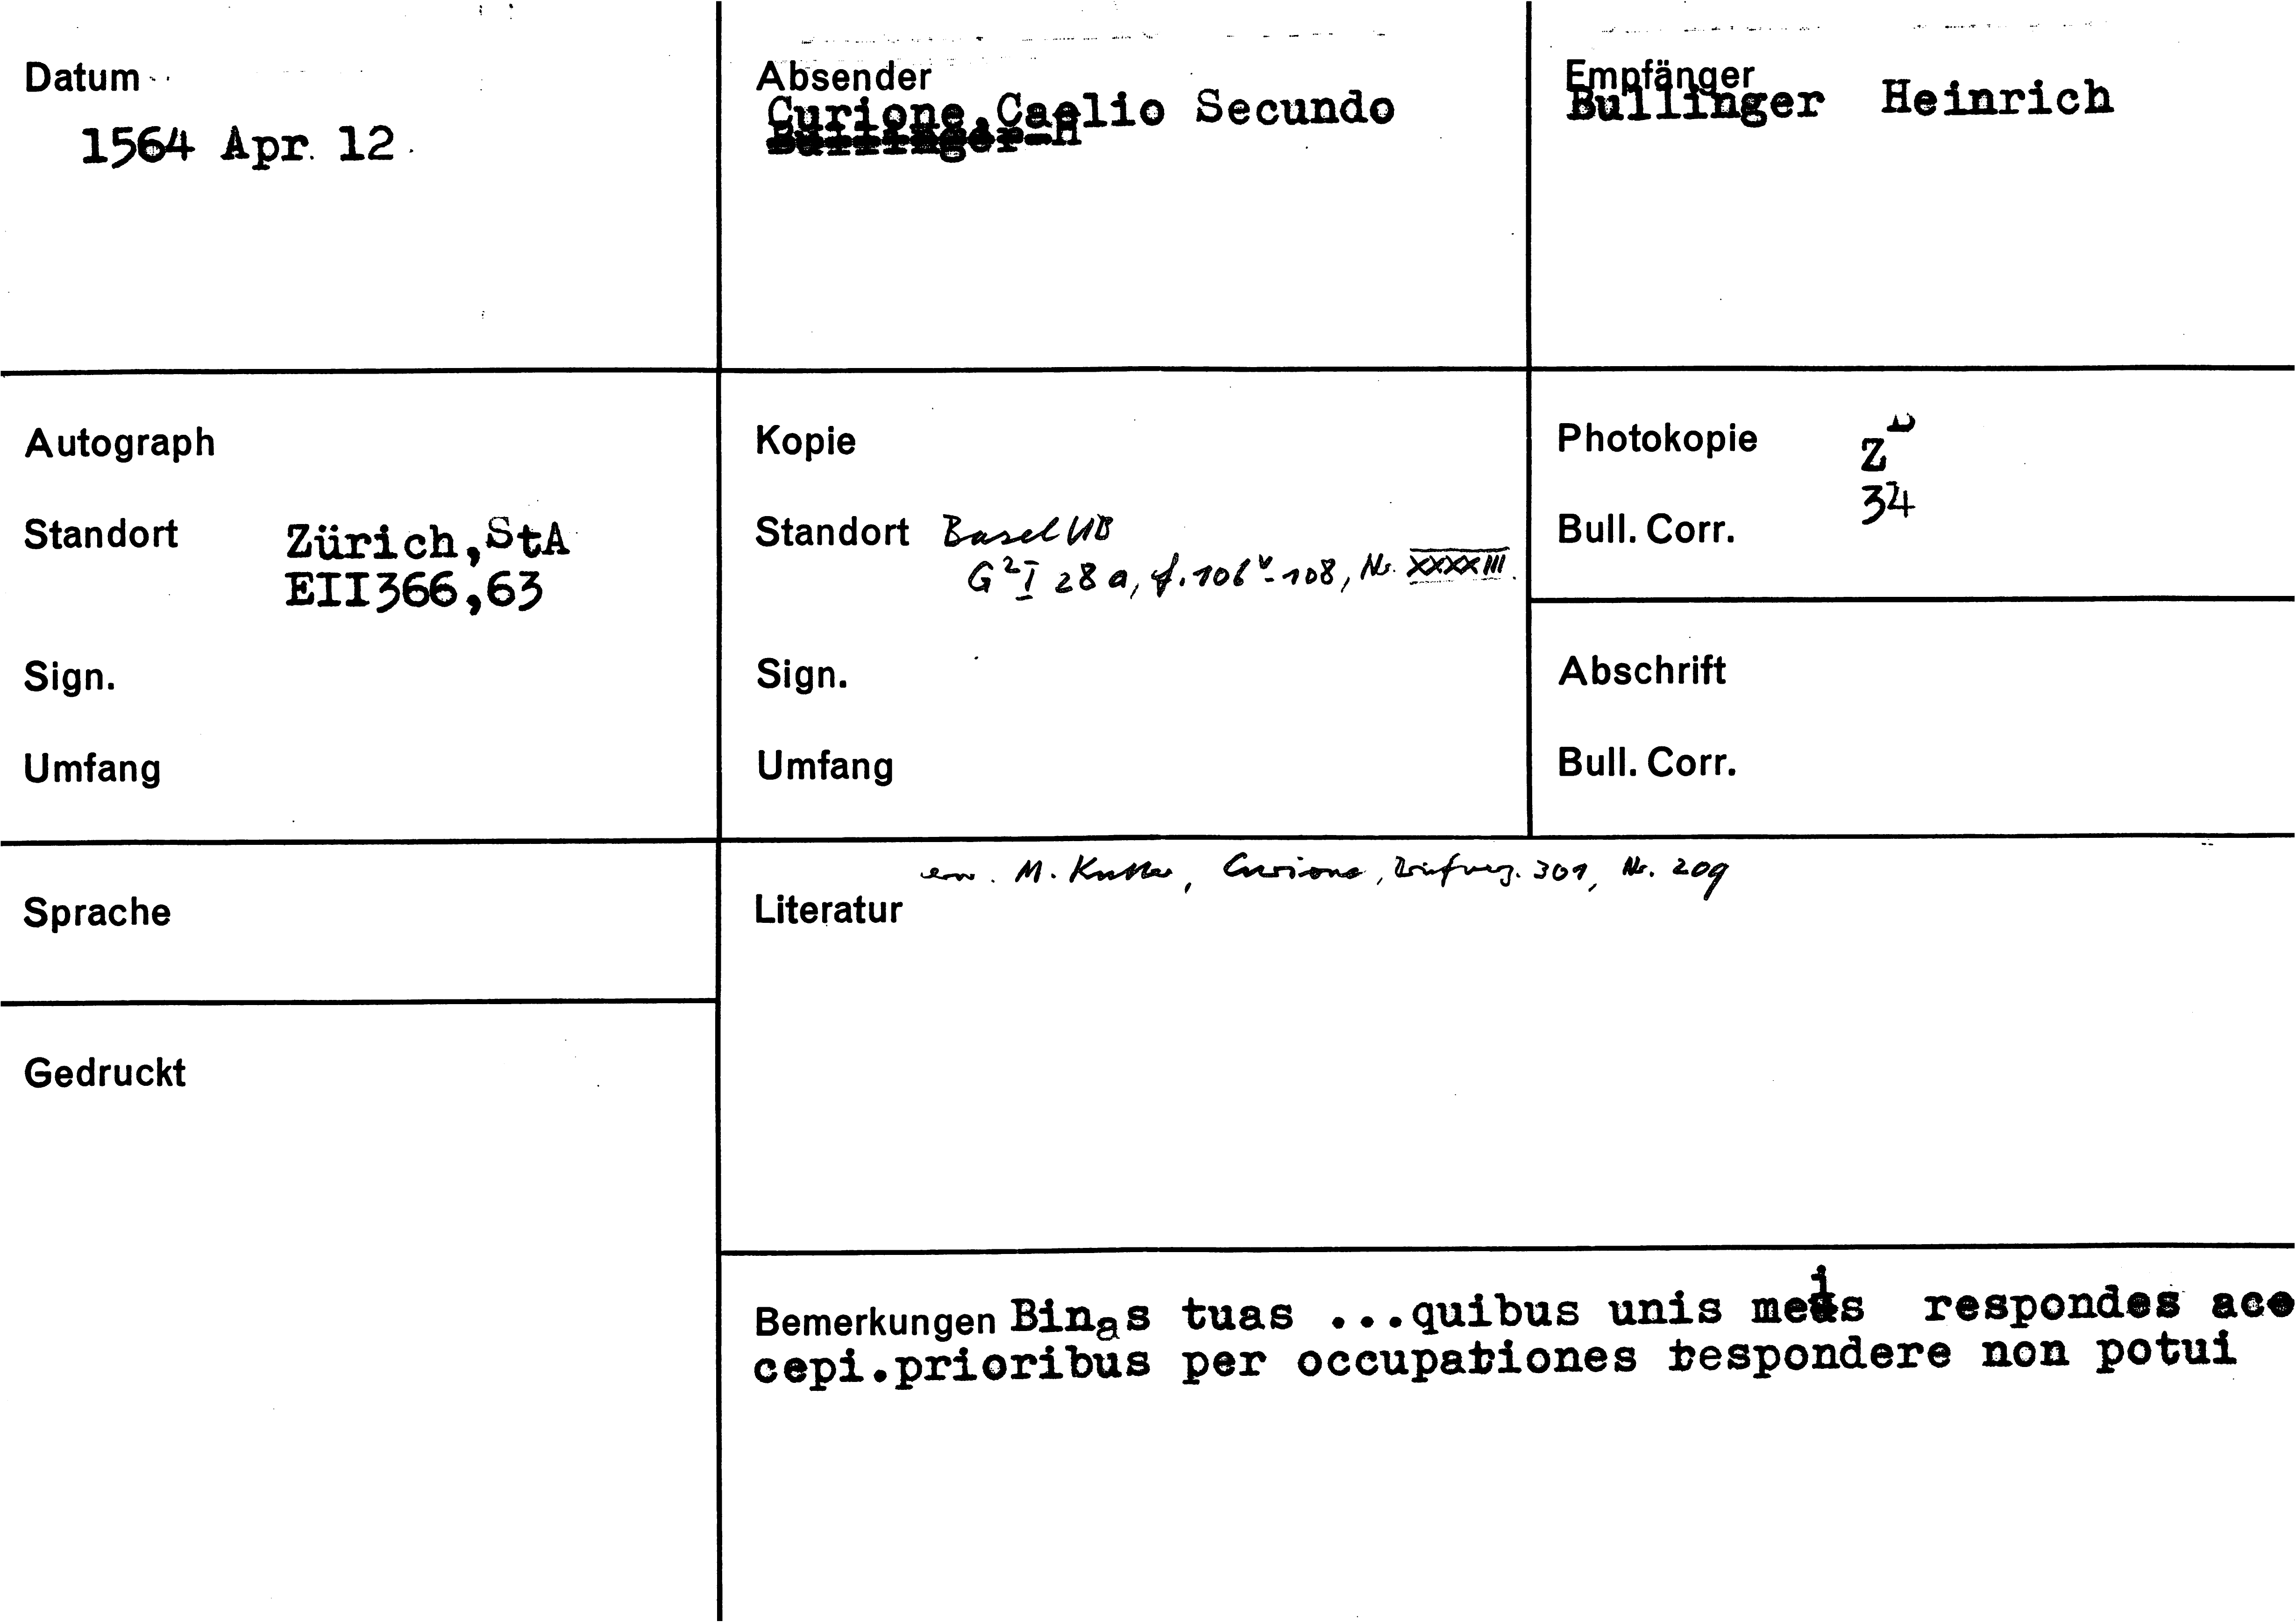 Datum
1564 Apr. 12.
Absender
Curione,Caelio Secundo
Empfänger
Bullinger Heinrich
Autograph
Standort Zürich,StA
EII366,63
Sign.
Umfang
Kopie
Standort Basel UB
G²I 28a, f. 106ᵛ-108, Nr. XXXXIII.
Sign.
Umfang
Photokopie Z
34
Bull. Corr.
Abschrift
Bull. Corr.
Sprache
Gedruckt
erw. M. Kutter, Curione, Briefverz. 301, Nr. 209
Literatur
Bemerkungen Binas tuas ...quibus unis meis respondes
cepi.prioribus per occupationes respondere non potui